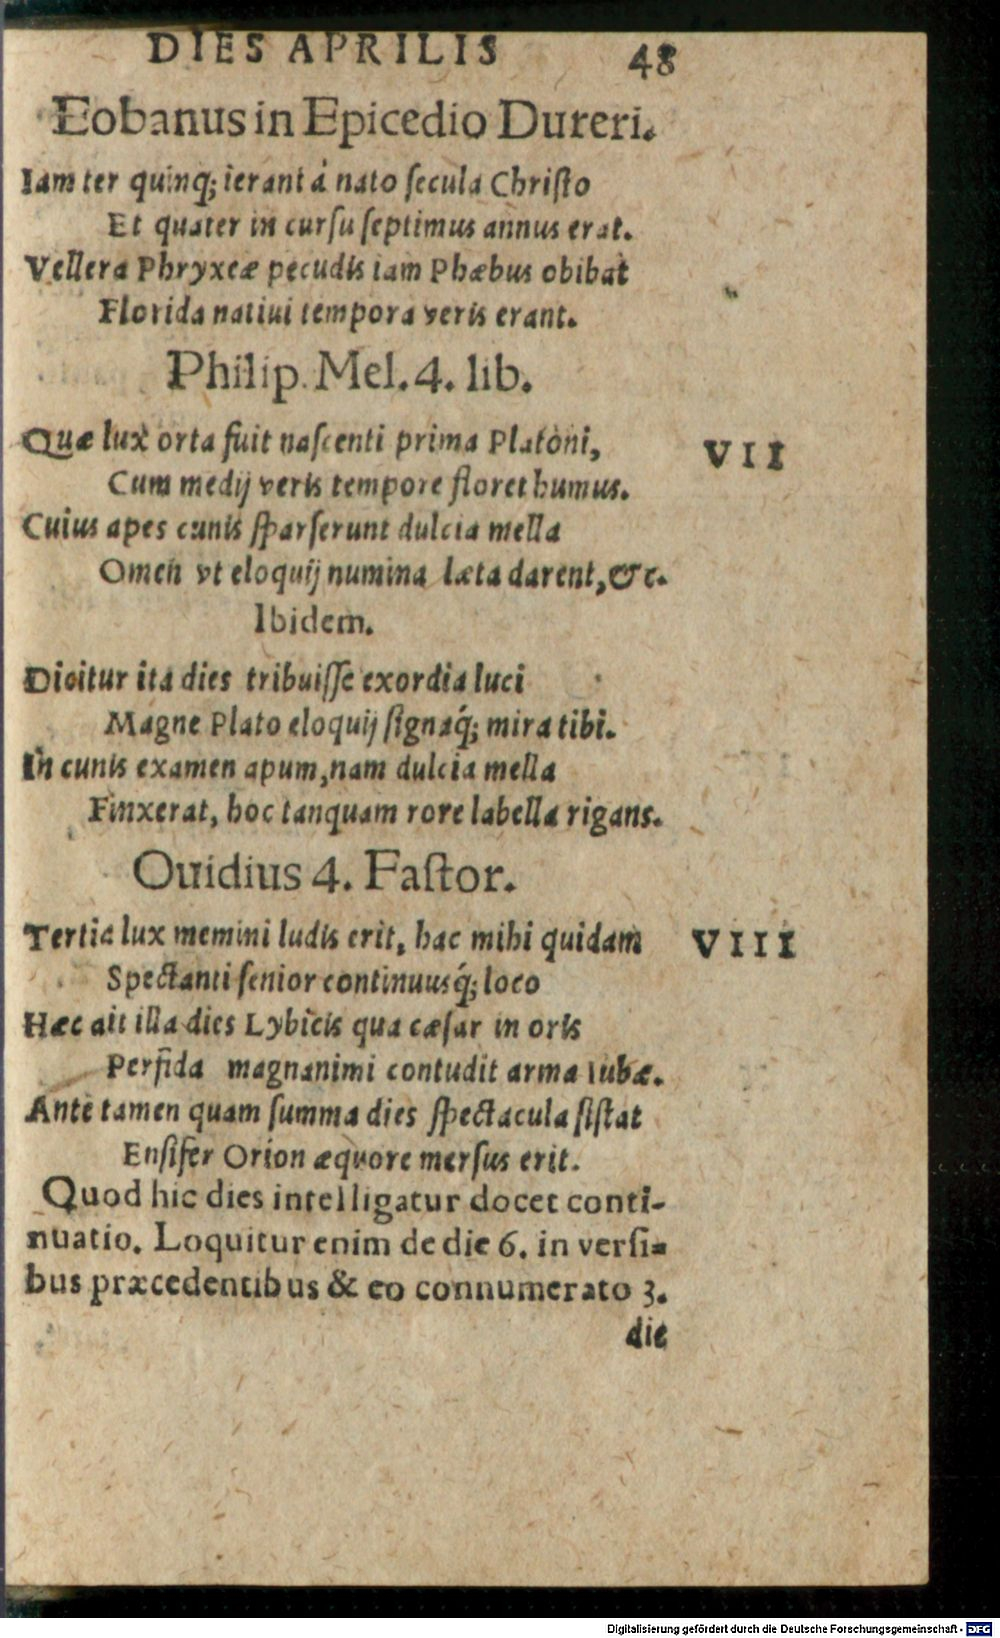 DIES APRILIS 48
Eobanus in Epicedio Dureri.
Iam ter quinq; ierant á nato ſecula Chriſto
Et quater in curſu ſeptimus annus erat.
Vellera Phryxeæ pecudis iam Phæbus obibat
Florida natiui tempora veris erant.
Philip. Mel. 4. lib.
Quæ lux orta fuit naſcenti prima Platoni, VII
Cum medij veris tempore floret humus.
Cuius apes cunis ſparſerunt dulcia mella
Omen vt eloquij numina læta darent, &c.
Ibidem.
Dicitur ita dies tribuiſſe exordia luci
Magne Plato eloquij ſignaq́; mira tibi.
In cunis examen apum, nam dulcia mella
Finxerat, hoc tanquam rore labella rigans.
Ouidius 4. Faſtor.
Tertia lux memini ludis erit, hac mihi quidam VIII
Spectanti ſenior continuusq́; loco
Hæc ait illa dies Lybicis qua cæſar in oris
Perfida magnanimi contudit arma Iubæ.
Ante tamen quam ſumma dies ſpectacula ſiſtat
Enſifer Orion æquore merſus erit.
Quod hic dies intelligatur docet conti-
nuatio. Loquitur enim de die 6. in verſi-
bus præcedentibus & eo connumerato 3.
die
Digitalisierung gefördert durch die Deutsche Forschungsgemeinschaft - DFG